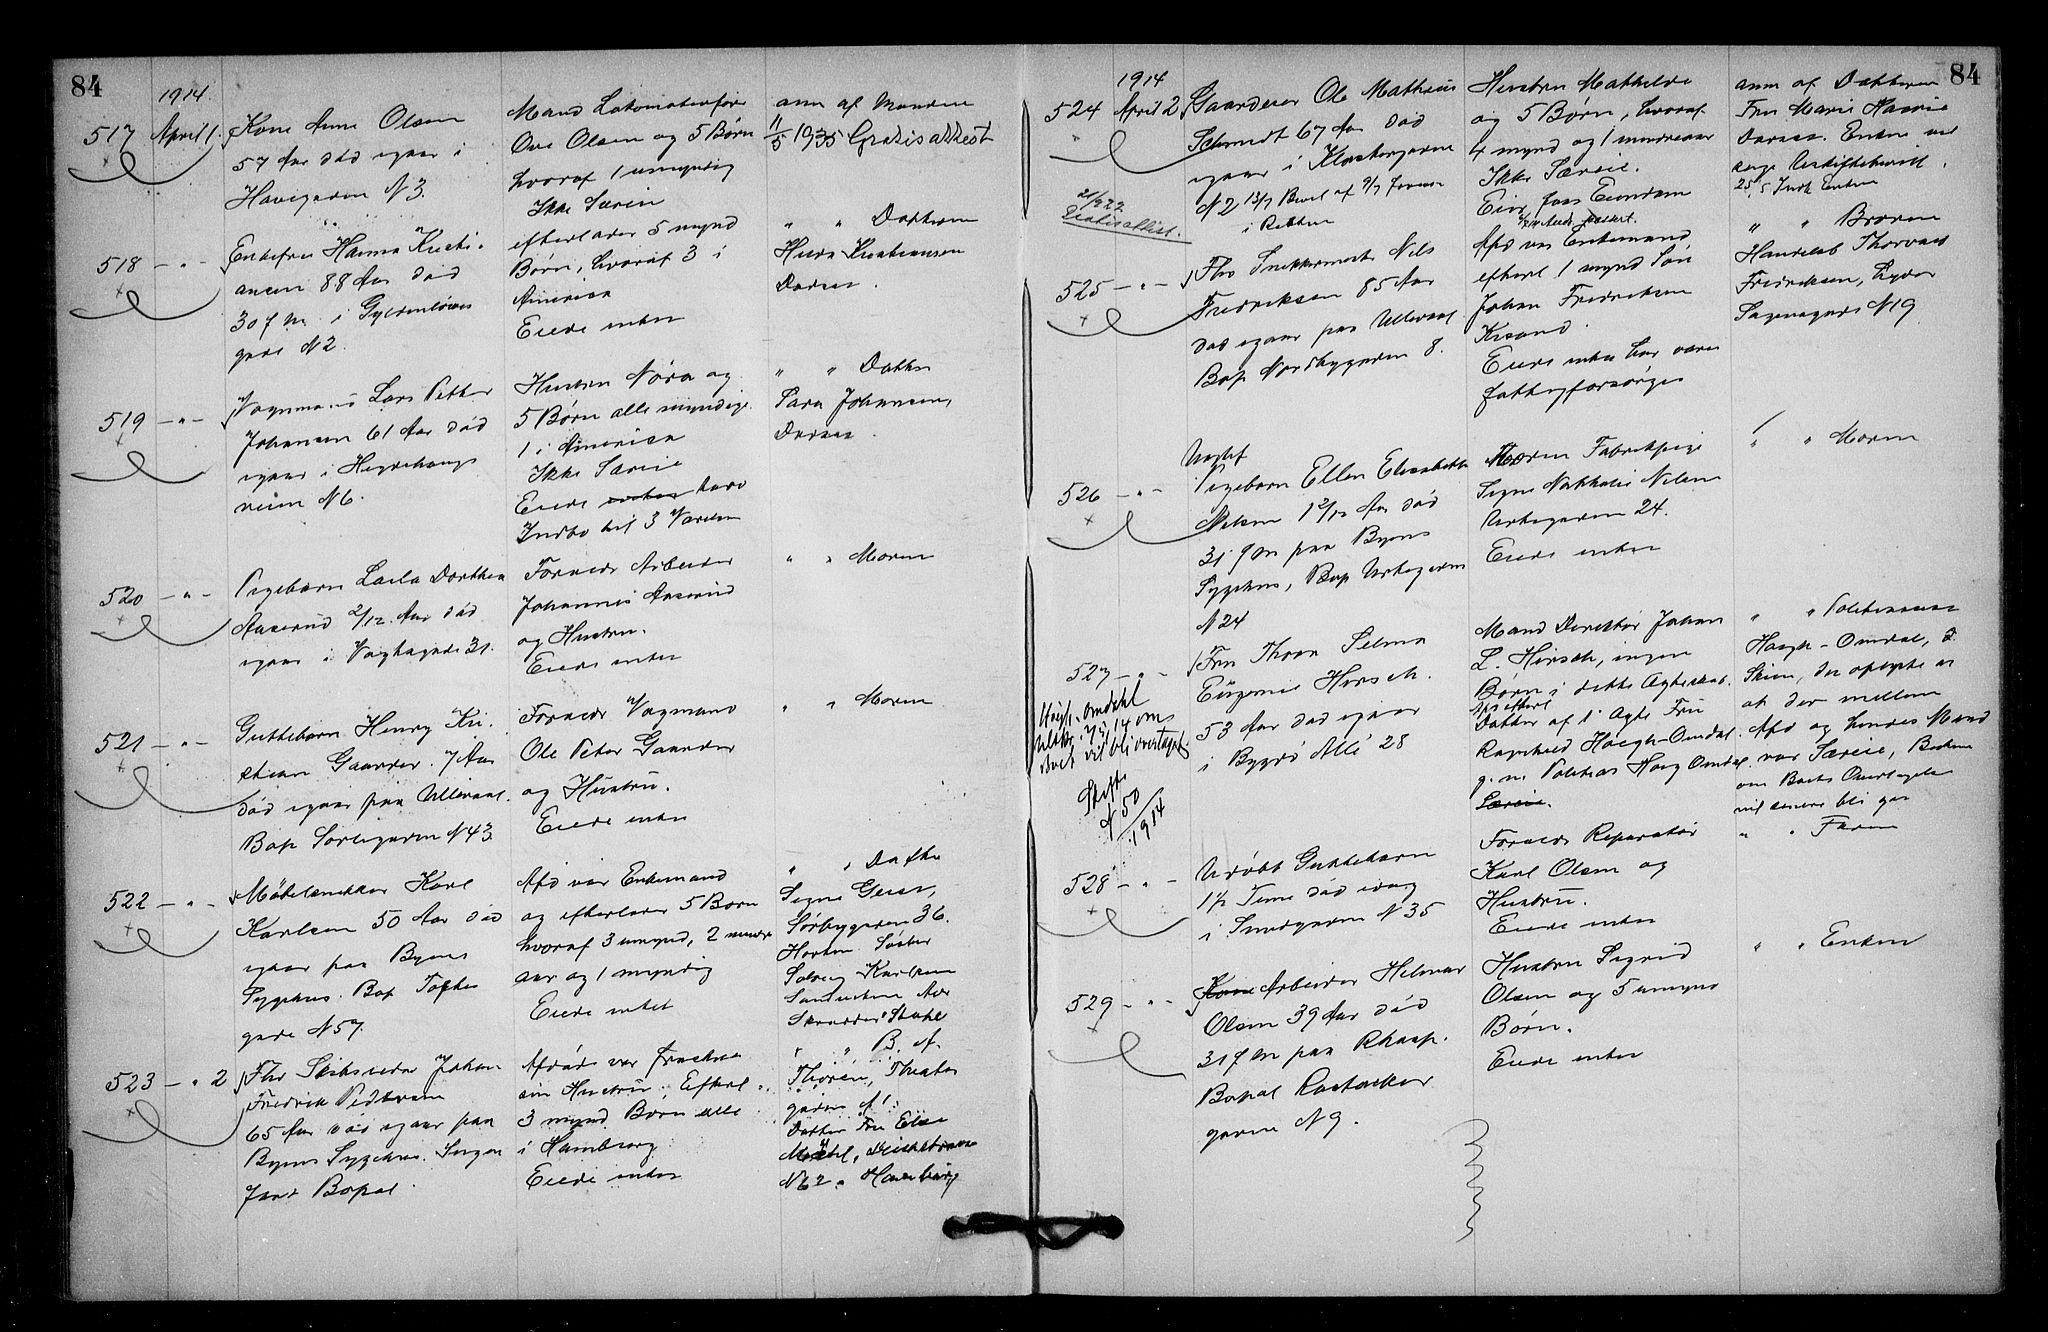 84
1914.
517 April 1. Kone Anna Olsen
57 Aar død igaar i
Havegaden N 3.
Mand Lokomotivfører
Ove Olsen og 5 Børn
hvoraf 1 umyndig
Ikke Særeie
anm af Manden
11/5 1935 Gratisattest
518 - " - Enkefru Hanna Kristi-
ansen 88 Aar død
30 f m i Gyldenløves
gade N 2.
efterlader 5 mynd
Børn, hvoraf 3 i
Amerika
Eiede intet
" " Datteren
Hulda Kristiansen
Dersst.
519 - " - Vognmand Lars Petter
Johansen 61 Aar død
igaar i Hegdehaugs
veien N 6.
Hustru Nora og
5 Børn alle myndige.
1 i Amerika
Ikke Særeie
Eiede intet
Indbo til 3 Værelser
" " Datter
Sara Johansen,
Dersst.
520 - " - Pigebarn Laila Dorthea
Aaserud 2/12 Aar død
igaar i Vogtsgade 31.
Forældr Arbeider
Johannes Aaserud
og Hustru.
Eiede intet
" " Moren
521 - " - Guttebarn Henry Kri-
stian Gaarder 7 Aar
død igaar paa Ullevaal.
Bop Sorligaden N 43.
Forældr Vogmand
Ole Peter Gaarder
og Hustru.
Eiede intet
" " Moren
522 - " - Møbelsnekker Karl
Karlsen 50 Aar død
igaar paa Byens
Sygehus. Bop Toftes
gade N 57.
Afd var Enkemand
og efterlader 5 Børn
hvoraf 3 umynd, 2 mindre
aar og 1 myndig
Eiede intet
" " Datter
Signe
Sørbygaden 36.
Horten Søster
Solveig Karlsen
523 - " 2 Fhv Skibsreder Johan
Fredrik Pedersen
65 Aar død igaar paa
Byens Sygehus. Ingen
fast Bopæl.
Afdøde var fraskilt
sin Hustru. Efterl
3 mynd. Børn alle
i Hamburg
Eiede intet
" " B. af.
Thorén, Theater
gaden N 1.
Datter Fru Else
N 62. Hamburg
84
1914
524 April 2 Gaardeier Ole Mathias
Schmidt 67 Aar død
igaar i Klostergaden
N 2 13/7 Bevil af 9/7 fremsat
i Retten
Gratisattest.
Hustru Mathilde
og 5 Børn, hvoraf
4 mynd og 1 mindreaar
Ikke Særeie.
Eier fast Eiendom
anm af Datteren
Fru Marie
Dersst. Enken vil
søge Uskiftebevill.
25/5 Indk Enken
525 - " - Fhv Snekkermester Nils
Fredriksen 85 Aar
død igaar paa Ullevaal
Bop Nordbygaden 8.
Afd var Enkemand
efterl 1 mynd Søn
Johan Fredriksen
Krsand.
Eiede intet har været
fattigforsørget
" " Broren
Handelsb Thorvald
Fredriksen, Lyder
Sagensgade N 19
526 - " - Uægtef
Pigebarn Ellen Elisabeth
Nilsen 1 2/12 Aar død
31 f m paa Byens
Sygehus, Bop Urtegaden
N 24
Moren Fabrikpige
Signe Nathalie Nilsen
Urtegaden 24.
Eiede intet
" " Moren
527 - " - Fru Thora Selma
Eugenie Hirsch.
53 Aar død igaar
i Bygdø Allé 28
Skifte
N 50
1914
Mand Direktør Johan
L. Hirsch, ingen
Børn i dette Ægteskab.
Datter af 1' Ægte Fru
Ragnhild Høegh-Omdal
g. m. Politias Høeg Omdal
Særeie.
" "
Høegh-Omdal,
Skien, der oplyste
at der mellem
Afd og hendes Mand
var Særeie, Bestem
om Boets Overtagelse
vil senere bli gjor
528 - " - Udøbt Guttebarn
1 1/2 Time død idag
i Smedgaden N 35
Forældr Reparatør
Karl Olsen og
Hustru.
Eiede intet
" " Faren
529 - " - Kone Arbeider Hilmar
Olsen 39 Aar død
31 f m paa Rhosp.
Bopæl Rostocker
gaden N 9.
Hustru Sigrid
Olsen og 5 umynd
Børn.
Eiede intet
" " Enken